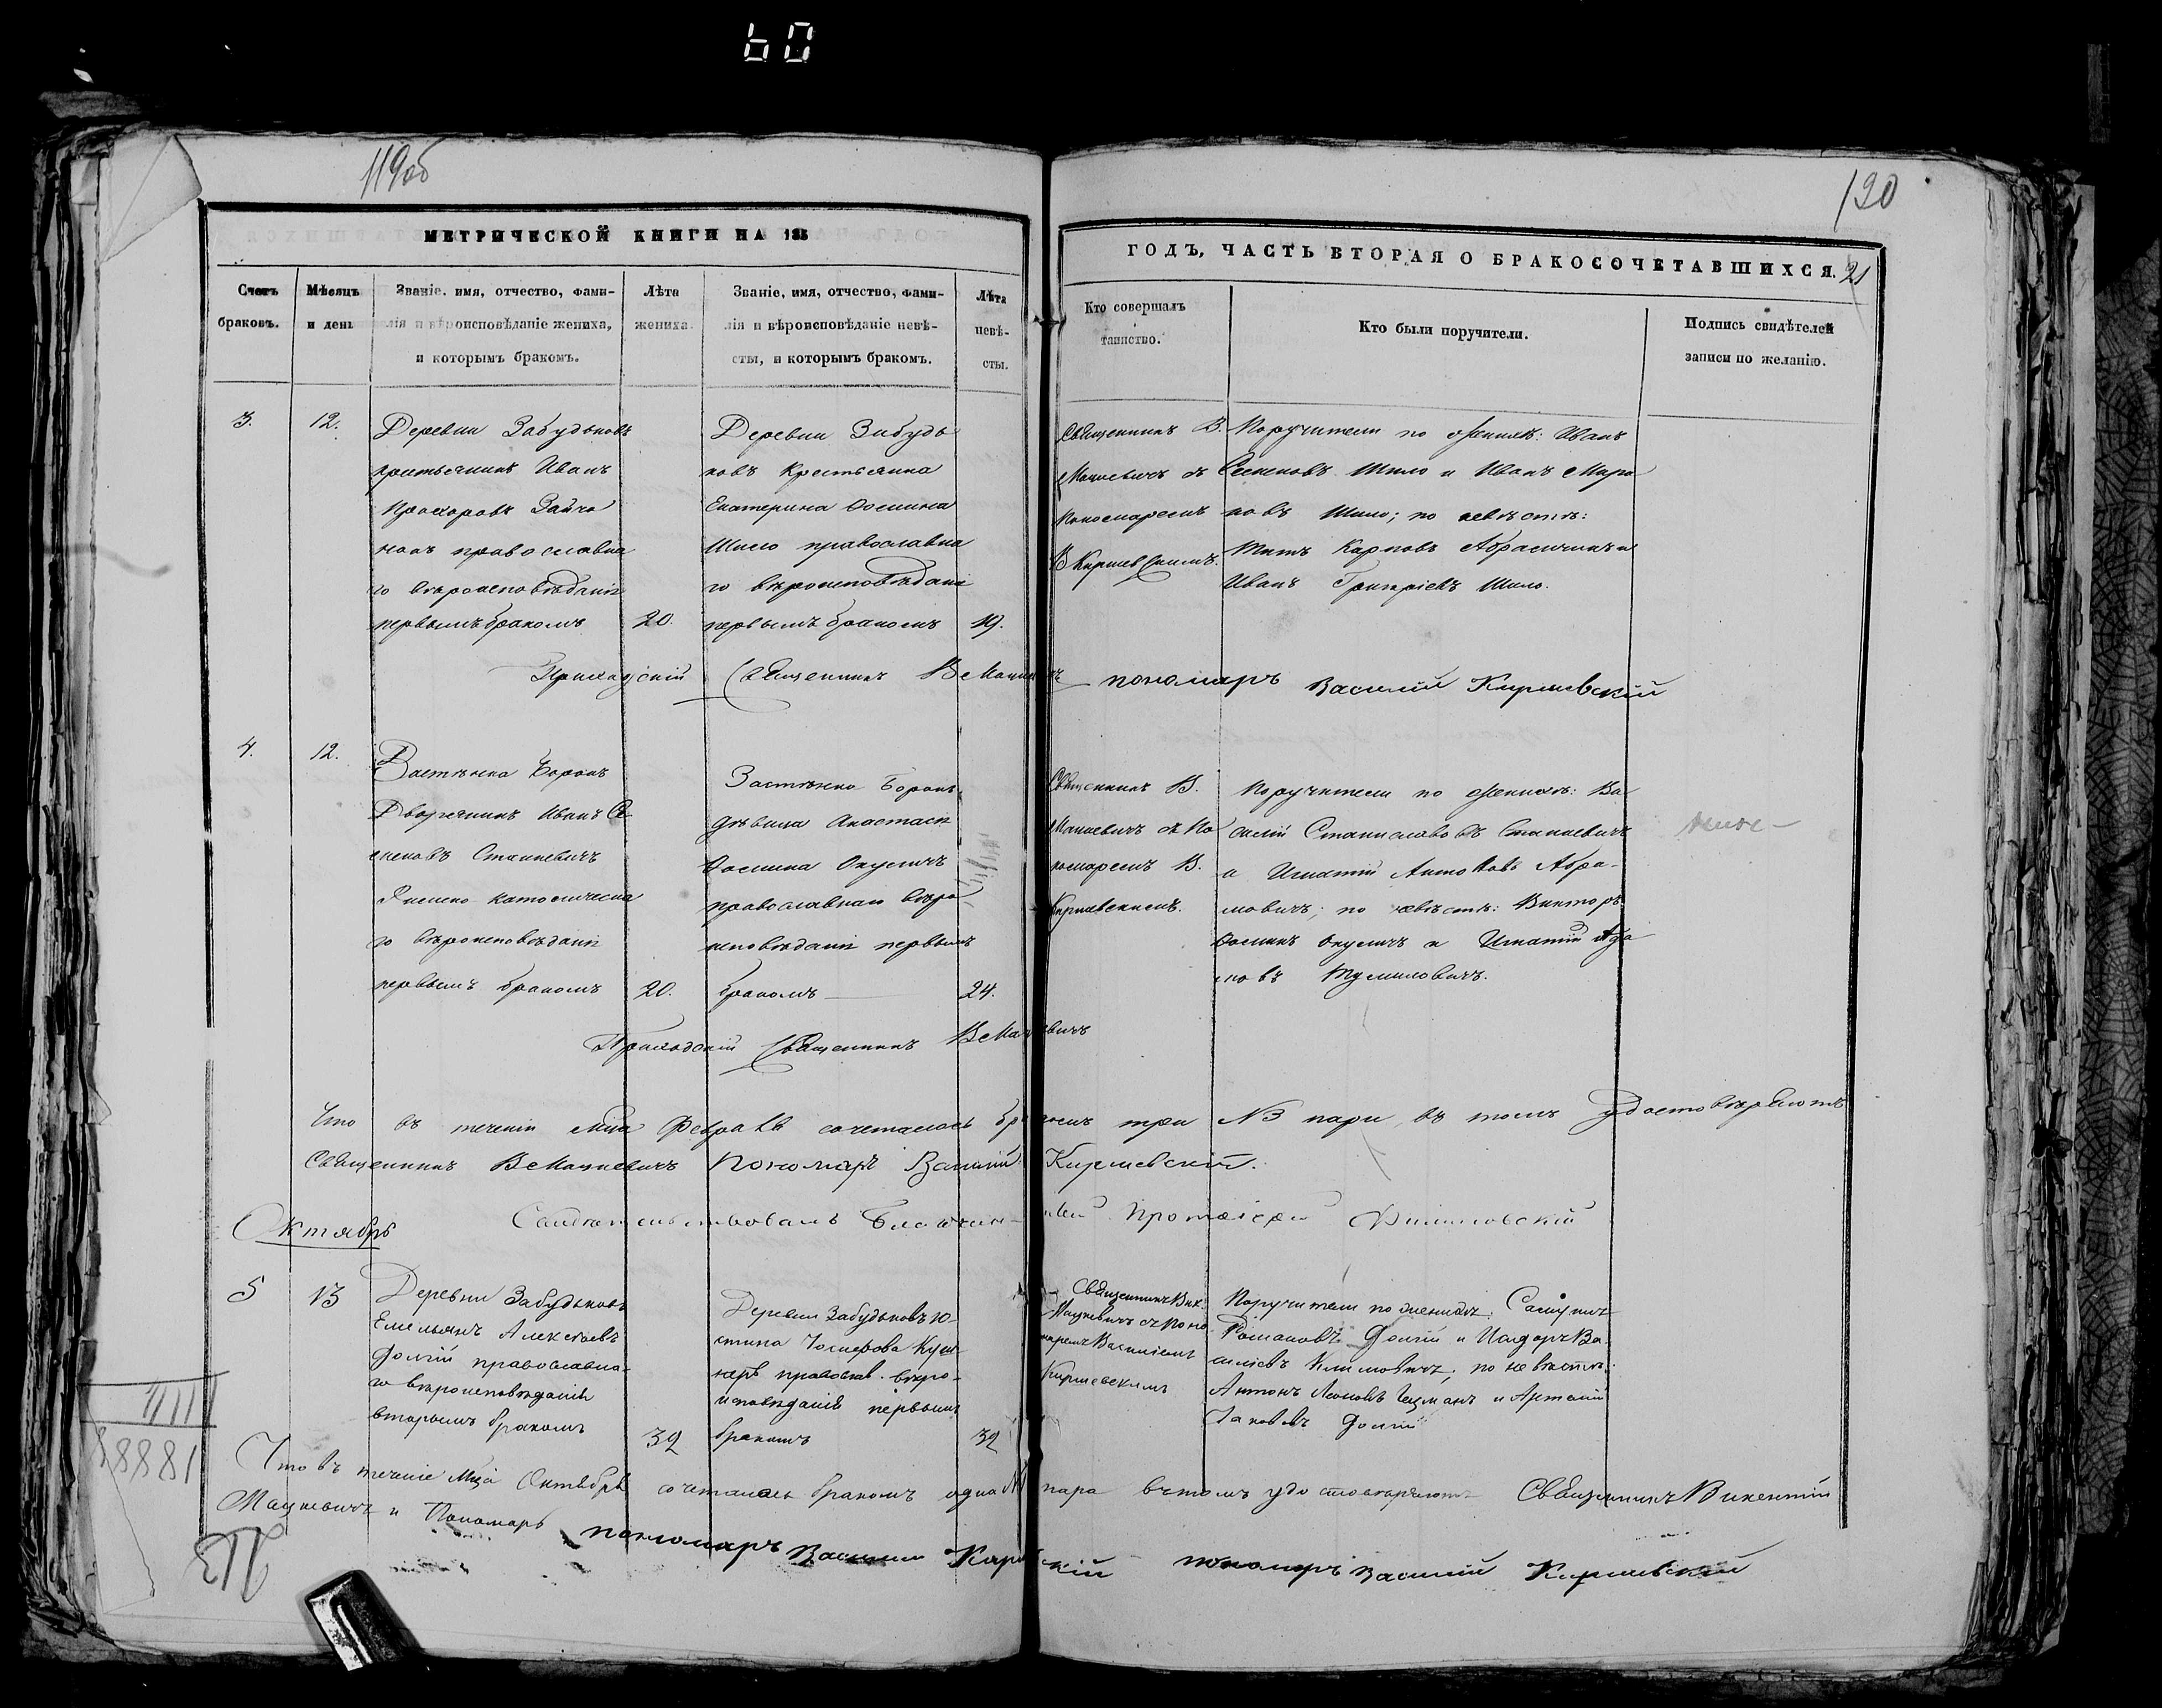 60
119об
120
МЕТРИЧЕСКОЙ КНИГИ НА 185
ГОДЪ, ЧАСТЬ ВТОРАЯ О БРАКОСОЧЕТАВШИХСЯ. 21
Счетъ
браковъ.
Мѣсяцъ
и день
Званіе, имя, отчество, фами-
лія и вѣроисповѣданіе жениха,
и которымъ бракомъ.
Лѣта
жениха.
Званіе, имя, отчество, фами-
лія и вѣроисповѣданіе невѣ-
сты, и которымъ бракомъ.
Лѣта
невѣ-
сты.
Кто совершалъ
таинство.
Кто были поручители.
Подпись свидѣтелей
записи по желанію.
3.
12.
Деревни Забудьковъ
крестьянинъ Иванъ
Прохоровъ
православна
го вѣроисповѣданія
первымъ бракомъ
20.
Деревни Забудь
ковъ крестьянка
Екатерина Ѳомина
Шило православна
го вѣроисповѣданія
первымъ бракомъ
19.
Священникъ В.
Мацкевичъ съ
Пономаремъ
В Киршевскимъ.
Поручители по женихѣ: Иванъ
Семеновъ Шило и Иванъ Миро
новъ Шило; по невѣстѣ:
Титъ Карповъ
Иванъ Григоріевъ Шило.
Приходскій Священникъ В Мацкевичъ пономаръ Василій Киршевскій
4.
12.
Застѣнка Боровъ
Дворянинъ Иванъ Се
меновъ Станкевичъ
Римско католическа
го вѣроисповѣданія
первымъ бракомъ
20.
Застѣнка Боровъ
дѣвица Анастасія
Ѳомина Окуличъ
православнаго вѣро
исповѣданія первымъ
бракомъ
24.
Священникъ В.
Мацкевичъ съ По
номаремъ В.
Киршевскимъ.
Поручители по женихѣ: Ва
силій Станиславовъ Станкевичъ
и Игнатій Антоновъ Абра-
мовичъ; по невѣстѣ: Викторъ
Ѳоминъ Окуличъ и Игнатій Ада
мовъ Тумиловичъ.
Приходскій Священникъ В Мацкевичъ
Что въ теченіи мца Февраля сочеталось бракомъ три №3 пары, въ томъ удостовѣряютъ
Священникъ В Мацкевичъ Пономарь Василій Киршевскій.
Свидѣтельствовалъ Благочинный Протоіерей
Октябрь
5
13
Деревни Забудьковъ
Емельянъ Алексѣевъ
Долгій православна-
го вѣроисповѣданія
вторымъ бракомъ
32
Деревни Забудьковъ Ю-
стина Іосифова
православ. вѣро-
исповѣданія первымъ
бракомъ
32
Священникъ Вик.
Мацкевичъ съ Поно
маремъ Василіемъ
Киршевскимъ
Поручители по женихѣ: Самуилъ
Романовъ Долгій и Исидоръ Ва
силіевъ Климовичъ; по невѣстѣ:
Антонъ и Артемій
Яковлевъ Долгій
Что въ теченіе мца Октября сочеталась бракомъ одна №1 пара въ томъ удостовѣряютъ Священникъ Викентій
Мацкевичъ и Пономарь
пономаръ Василій Киршевскій пономаръ Василій Киршевскій
18888